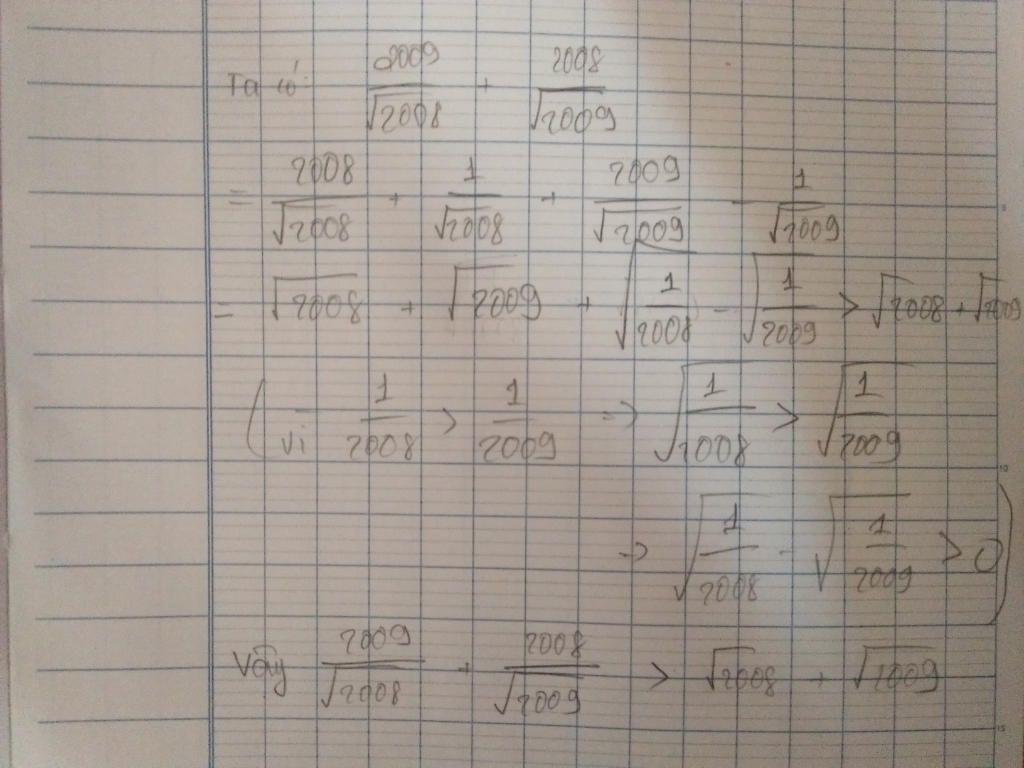 Ta có: 2009/√2008 + 2008/√2009
= 2008/√2008 + 1/√2008 + 2009/√2009 - 1/√2009
= √2008 + √2009 + √(1/2008) - √(1/2009) > √2008 + √2009
(vì 1/2008 > 1/2009 => √(1/2008) > √(1/2009)
=> √(1/2008) - √(1/2009) > 0)
Vậy 2009/√2008 + 2008/√2009 > √2008 + √2009